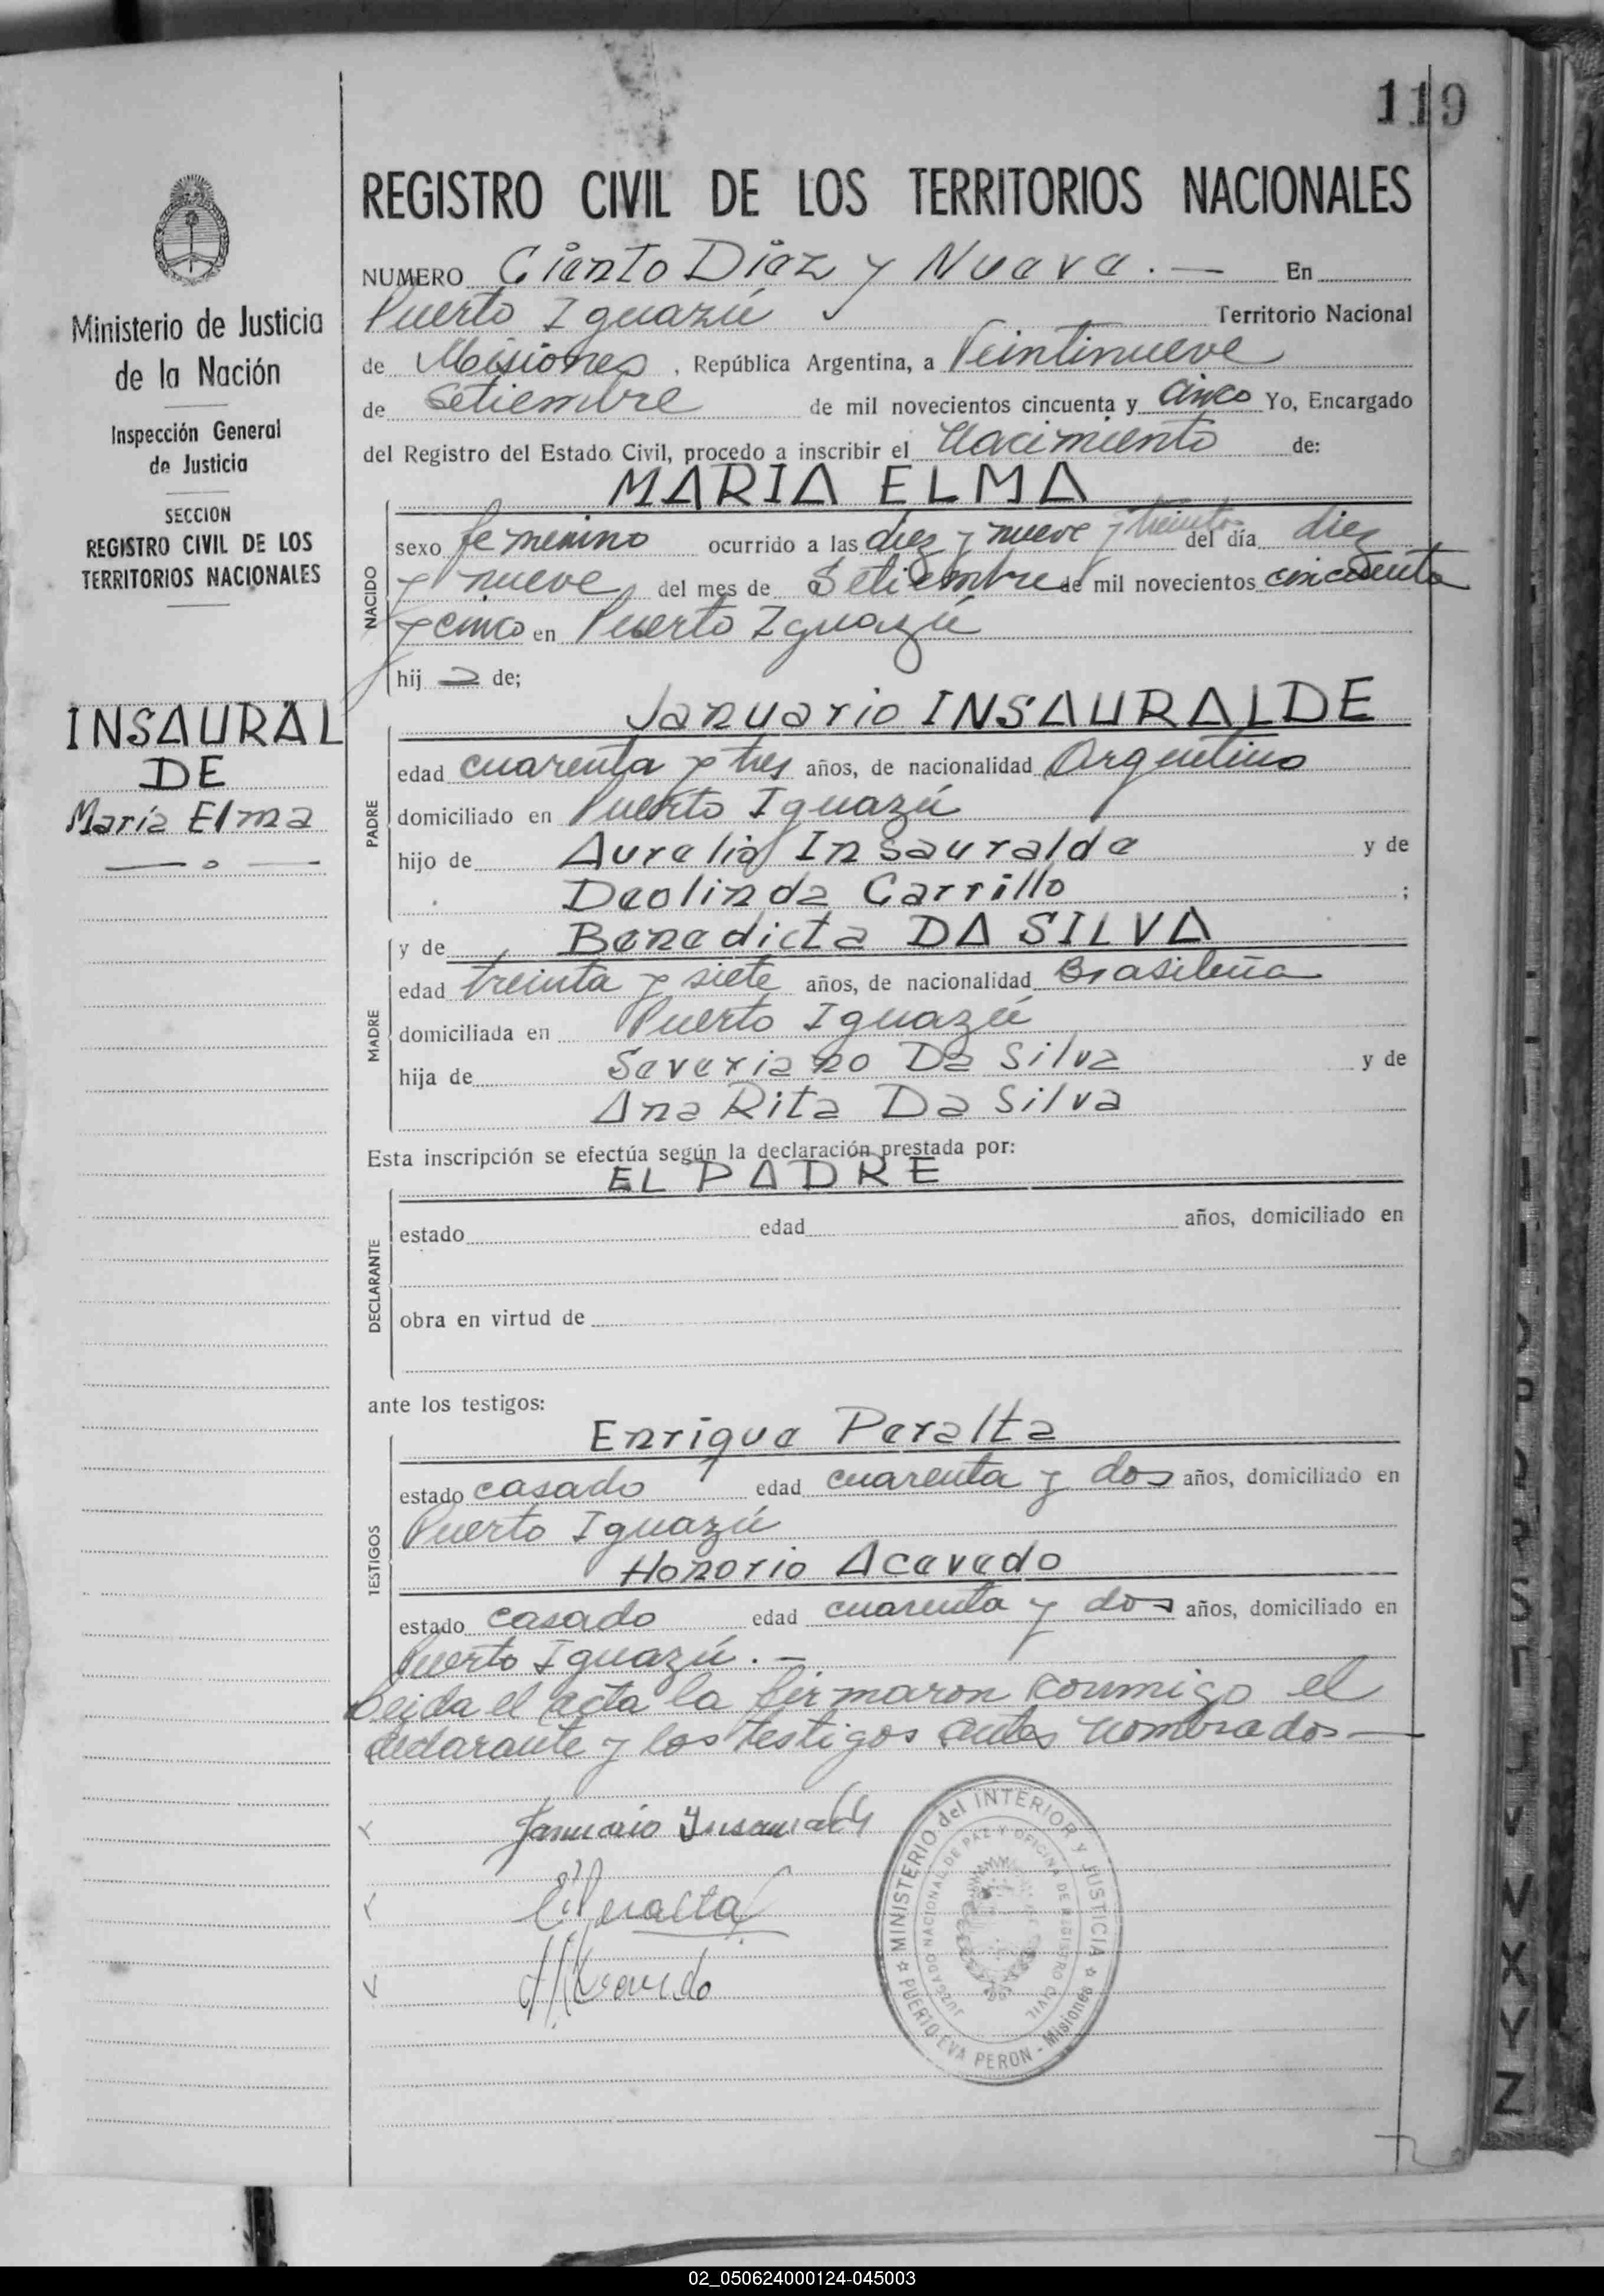 119
REGISTRO CIVIL DE LOS TERRITORIOS NACIONALES
NUMERO Ciento Diez y Nueve.— En
Puerto Iguazú Territorio Nacional
de Misiones, República Argentina, a Veintinueve
de Setiembre de mil novecientos cincuenta y cinco Yo, Encargado
del Registro del Estado Civil, procedo a inscribir el Nacimiento de:
MARIA ELMA
NACIDO
sexo femenino ocurrido a las diez y nueve y treinta del día diez
y nueve del mes de Setiembre de mil novecientos cincuenta
y cinco en Puerto Iguazú
hij a de;
Januario INSAURALDE
PADRE
edad cuarenta y tres años, de nacionalidad Argentino
domiciliado en Puerto Iguazú
hijo de Aurelio Insauralde y de
Deolinda Carrillo ;
y de Benedicta DA SILVA
MADRE
edad treinta y siete años, de nacionalidad Brasileña
domiciliada en Puerto Iguazú
hija de Severiano Da Silva y de
Ana Rita Da Silva
Esta inscripción se efectúa según la declaración prestada por:
EL PADRE
DECLARANTE
estado edad años, domiciliado en
obra en virtud de
ante los testigos:
Enrique Peralta
TESTIGOS
estado casado edad cuarenta y dos años, domiciliado en
Puerto Iguazú
Honorio Acevedo
estado casado edad cuarenta y dos años, domiciliado en
Puerto Iguazú.—
Leida el acta la firmaron conmigo el
declarante y los testigos antes nombrados—
Januario Insauralde
E. Peralta
H Acevedo
MINISTERIO del INTERIOR y JUSTICIA
JUZGADO NACIONAL DE PAZ Y OFICINA DE REGISTRO CIVIL
PUERTO EVA PERON - Misiones
Ministerio de Justicia
de la Nación
Inspección General
de Justicia
SECCION
REGISTRO CIVIL DE LOS
TERRITORIOS NACIONALES
INSAURAL
DE
María Elma
V
X
Y
Z
02_050624000124-045003